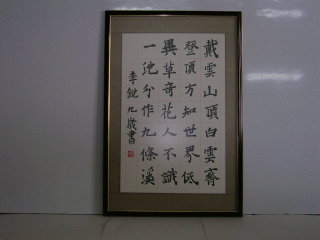 戴雲山頂白雲齊
登頂方知世界低
異草奇花人不識
一池分作九條溪
李銳九歲書